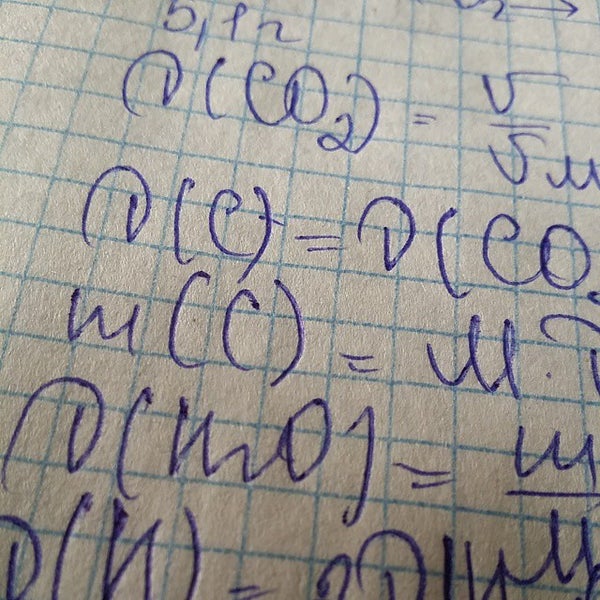 5,1г
ν(CO₂) = V/Vм
ν(C) = ν(CO₂
m(C) = M·ν
ν(H₂O) = m/M
ν(H) = 2ν(H